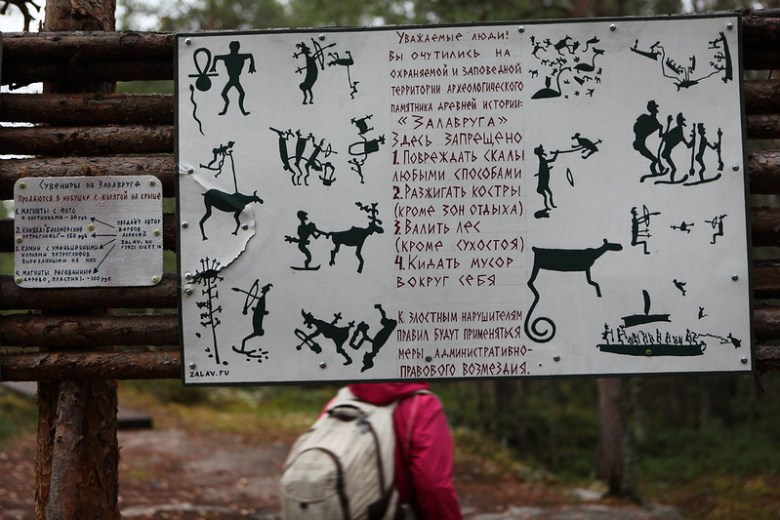 Уважаемые люди!
Вы очутились на
охраняемой и заповедной
территории археологического
памятника древней истории:
«Залавруга»
Здесь запрещено
1. Повреждать скалы
любыми способами
2. Разжигать костры
(кроме зон отдыха)
3 Валить лес
(кроме сухостоя)
4. Кидать мусор
вокруг себя
К злостным нарушителям
правил будут применяться
меры административно-
правового возмездия.
zalav.ru
Сувениры на Залавруге
Продаются в избушке с корягой на крыше
1. Магниты с фото
150 руб
продаёт
Алексей
ZALAV.RU
4. Магниты рисованные
(дерево, пластик) -